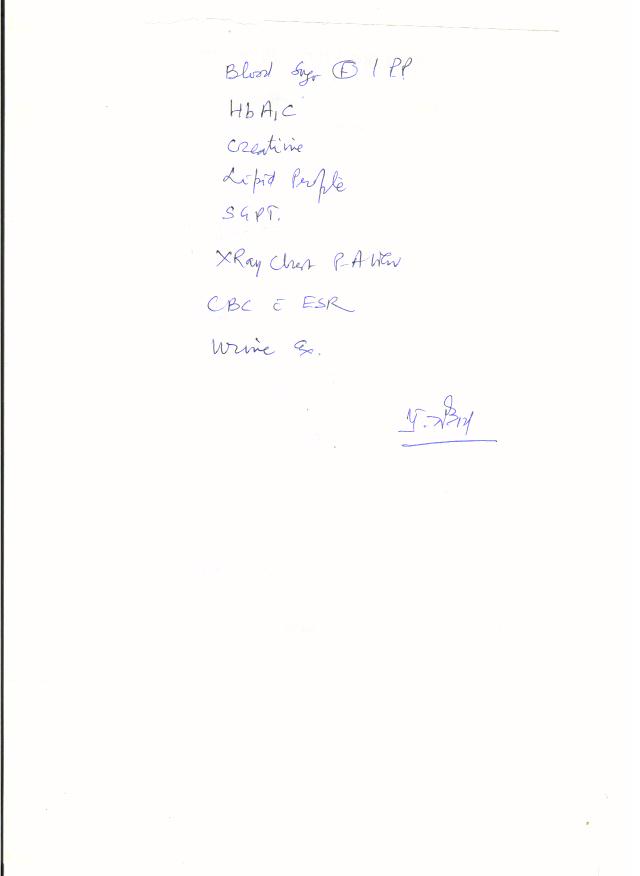 Blood Sugr Ⓕ / PP
HbA1C
Creatinie
Lipid Profile
SGPT.
XRay Chest P-A View
CBC c̄ ESR
Urine Ex.